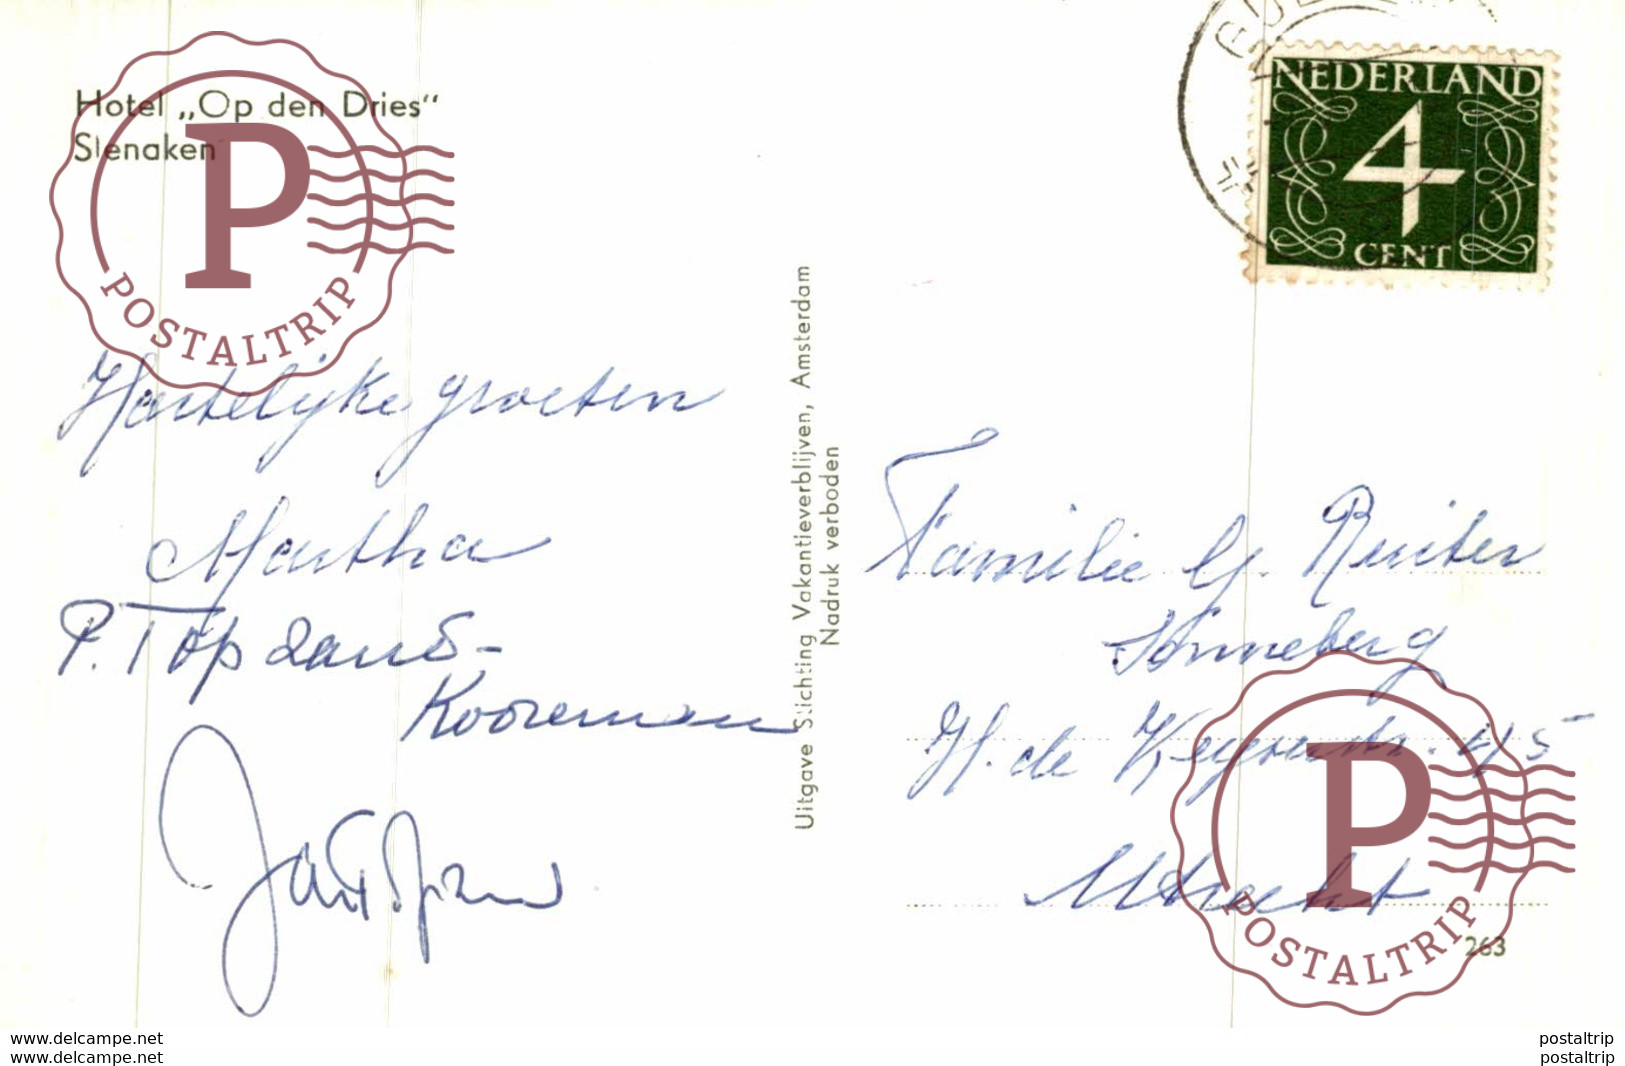 Hotel „Op den Dries"
Slenaken
Hartelijke groeten
Martha
P. Topdand-
Kooreman
Uitgave Stichting Vakantieverblijven, Amsterdam
Nadruk verboden
NEDERLAND
4
CENT
Familie G. Ruiter
Sonneberg
H. de Keyserstr. 45
Utrecht
263
P
POSTALTRIP
P
POSTALTRIP
www.delcampe.net
www.delcampe.net
postaltrip
postaltrip